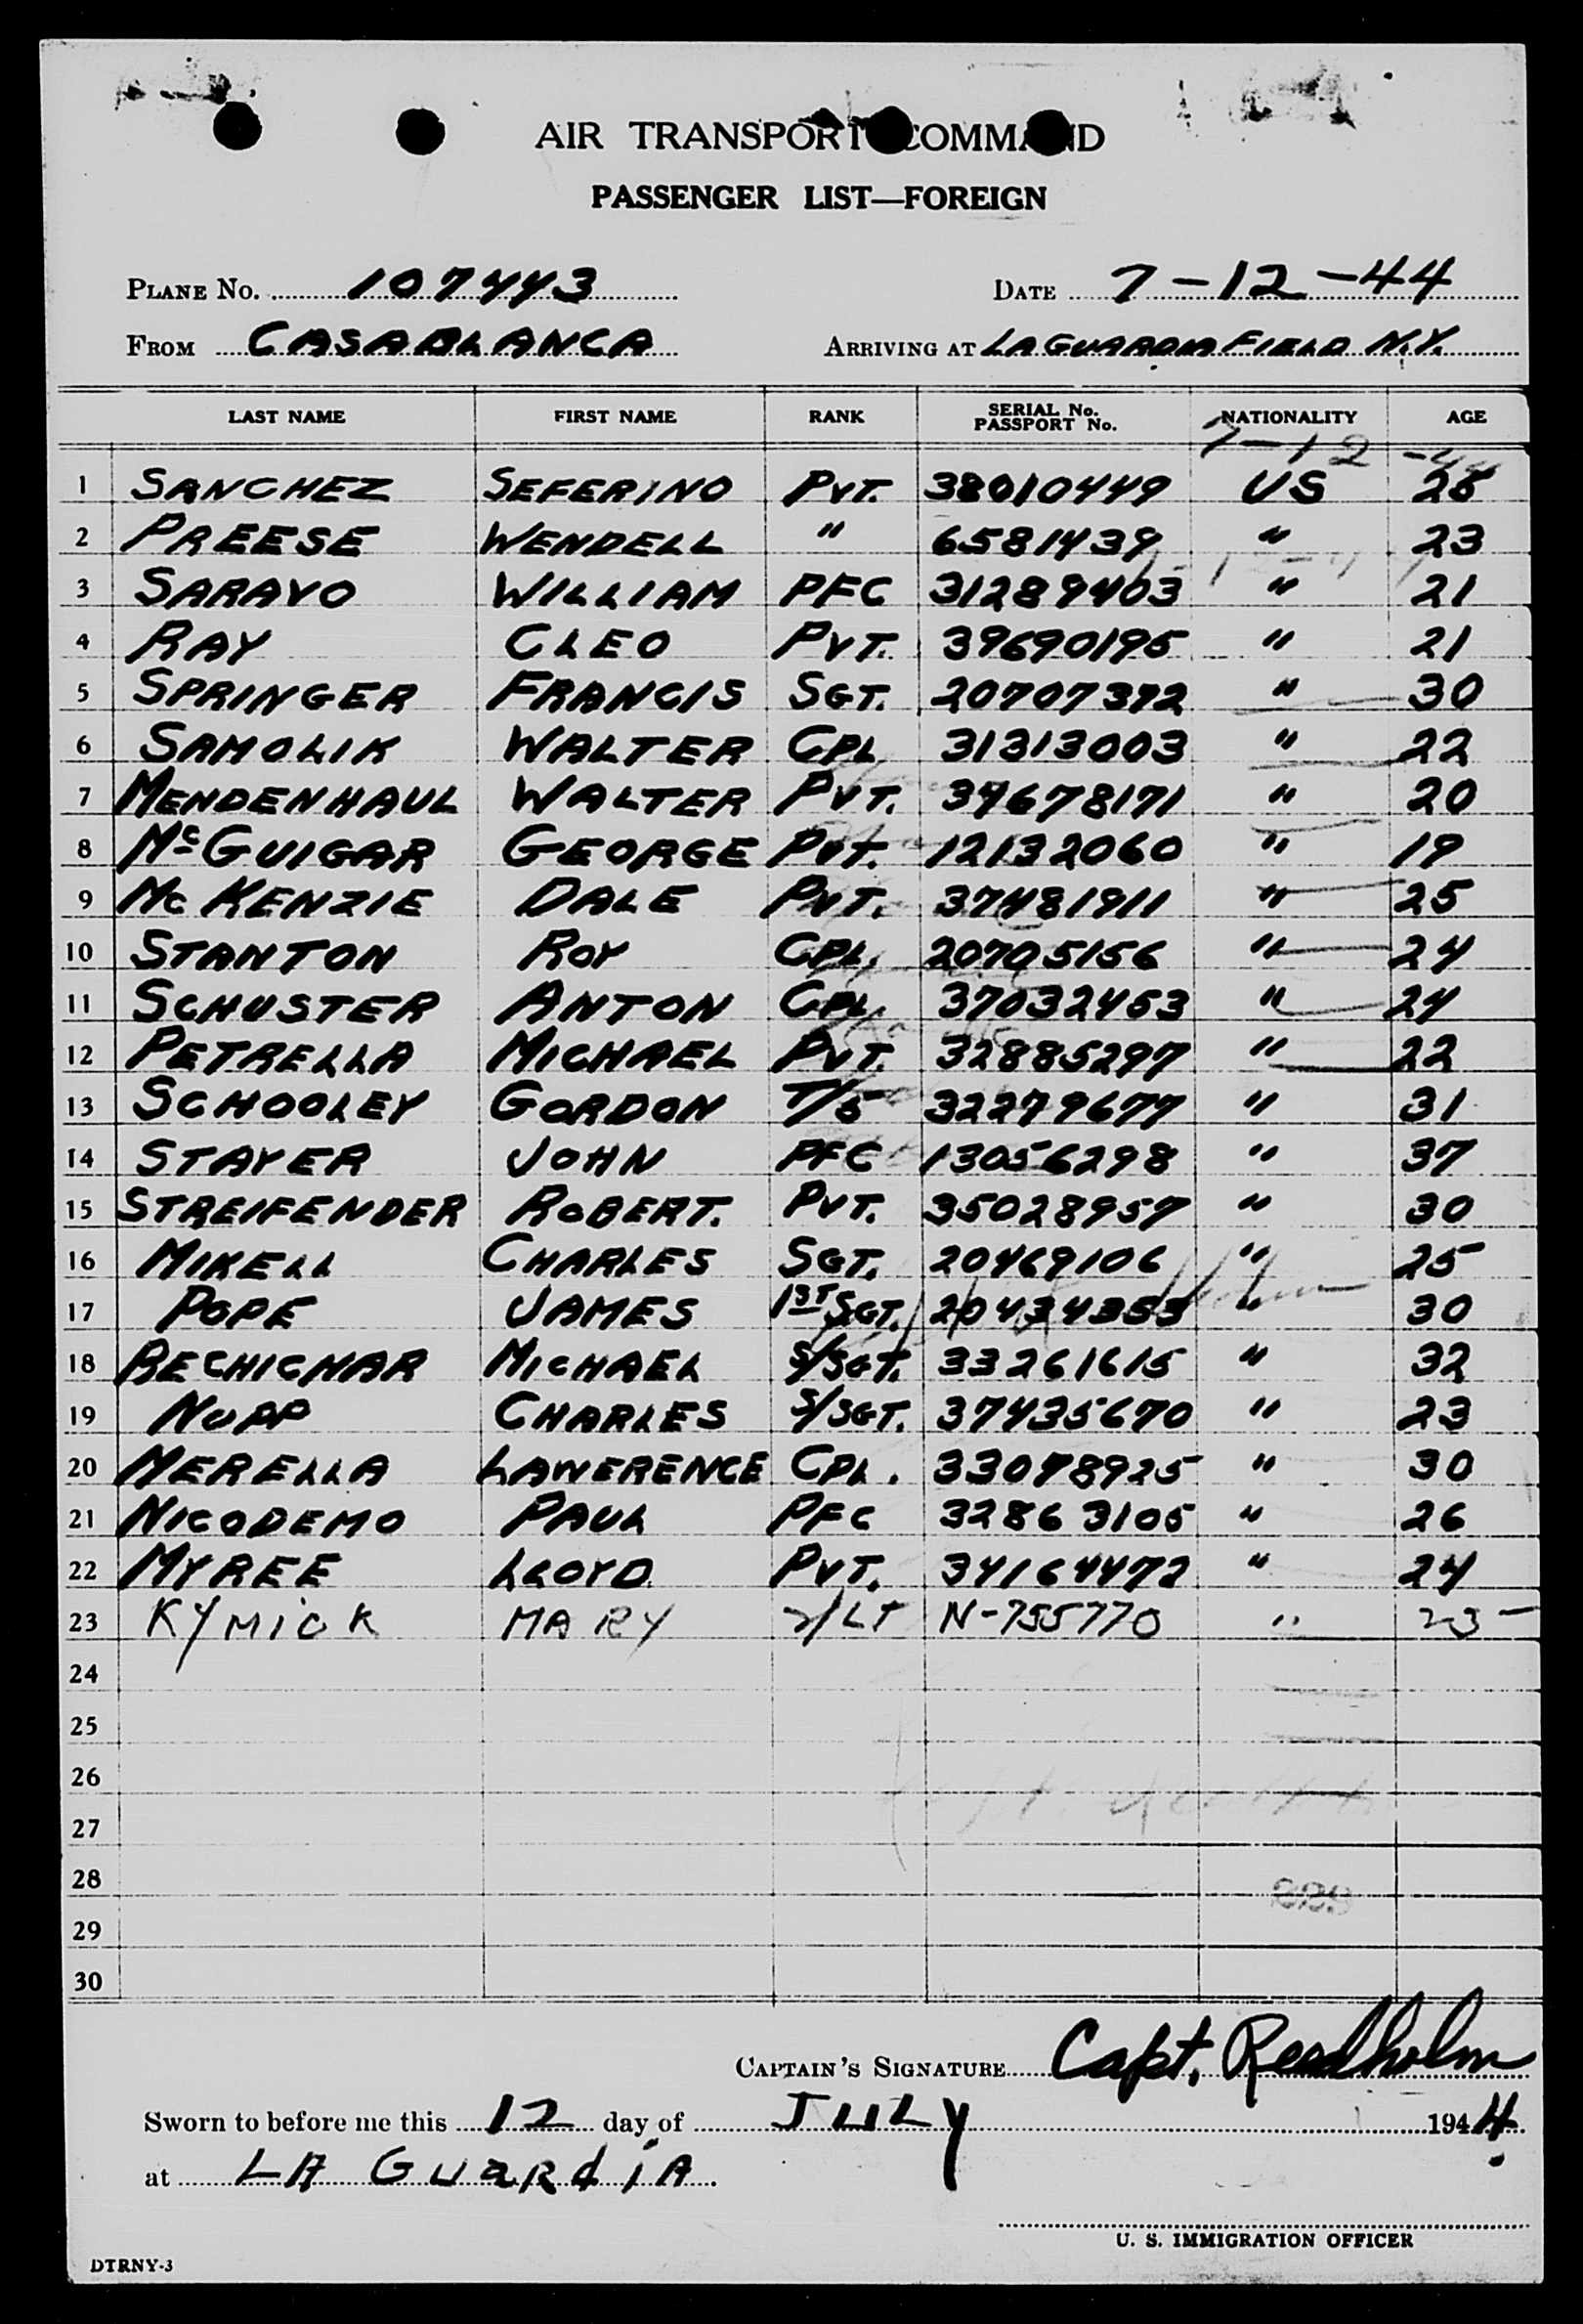 AIR TRANSPORT COMMAND
PASSENGER LIST—FOREIGN
PLANE No. 107443 DATE 7-12-44
FROM CASABLANCA ARRIVING AT LA GUARDIA FIELD N.Y.
LAST NAME FIRST NAME RANK SERIAL No. PASSPORT No. NATIONALITY AGE
7-12-44
1 SANCHEZ SEFERINO PVT. 38010449 US 26
2 PREESE WENDELL " 6581439 " 23
3 SARAVO WILLIAM PFC 31289403 " 21
4 RAY CLEO PVT. 39690195 " 21
5 SPRINGER FRANCIS SGT. 20707372 " 30
6 SAMOLIK WALTER CPL 31313003 " 22
7 MENDENHAUL WALTER PVT. 34678171 " 20
8 McGUIGAR GEORGE Pvt. 12132060 " 19
9 Mc KENZIE DALE PVT. 37481911 " 25
10 STANTON ROY CPL. 20705156 " 24
11 SCHUSTER ANTON CPL. 37032453 " 24
12 PETRELLA MICHAEL PVT. 32885297 " 22
13 SCHOOLEY GORDON T/5 32279677 " 31
14 STAYER JOHN PFC 13056298 " 37
15 STREIFENDER ROBERT. PVT. 35028957 " 30
16 MIKELL CHARLES SGT. 20469106 " 25
17 POPE JAMES 1ST SGT. 20434353 " 30
18 BECHIGNAR MICHAEL S/SGT. 33261615 " 32
19 NUPP CHARLES S/SGT. 37435670 " 23
20 MERELLA LAWERENCE CPL. 33078925 " 30
21 NICODEMO PAUL PFC 32863105 " 26
22 MYREE LLOYD PVT. 34164472 " 24
23 KYMICK MARY 2/LT N-755770 " 23
24
25
26
27
28
29
30
CAPTAIN'S SIGNATURE Capt. Readholm
Sworn to before me this 12 day of JULY 1944
at LA GUARDIA
U. S. IMMIGRATION OFFICER
DTRNY-3